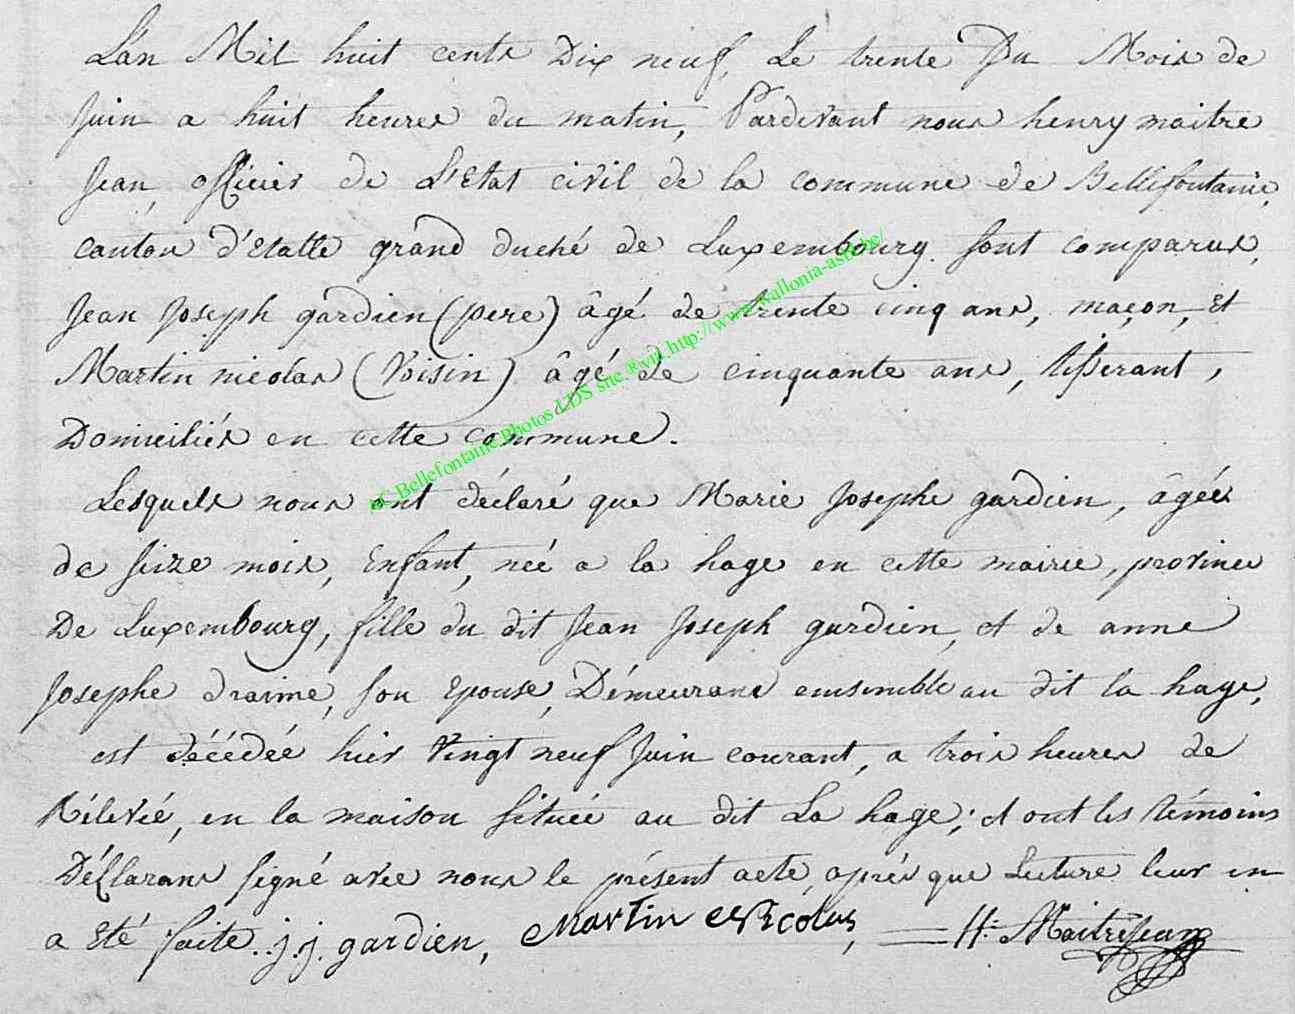 L'an Mil huit cents Dix neuf, Le trente Du Mois de
Juin a huit heures du matin, Pardevant nous henry maitre
Jean, officier de L'Etat civil de la commune de Bellefontaine,
canton d'Etalle grand duché de Luxembourg. sont comparus,
Jean Joseph gardien (pere) âgé de trente cinq ans, maçon, et
Martin nicolas (Voisin) âgé de cinquante ans, tisserant,
Domiciliés en cette commune.
Lesquels nous ont déclaré que Marie Josephe gardien, âgée
de seize mois, Enfant, née a la hage en cette mairie, province
De Luxembourg, fille du dit Jean Joseph gardien, et de anne
Josephe draime, son Epouse, Démeurans ensemble au dit la hage,
est décédée hier Vingt neuf Juin courant, a trois heures de
Rélevée, en la maison située au dit La hage; et ont les témoins
Déclarans signé avec nous le présent acte, après que Lecture leur en
a Eté faite. j.j. gardien, Martin Nicolas, H: Maitrejean
aC Bellefontaine.Photos LDS sne .Rvin.http://www.wallonia-asbl.be/